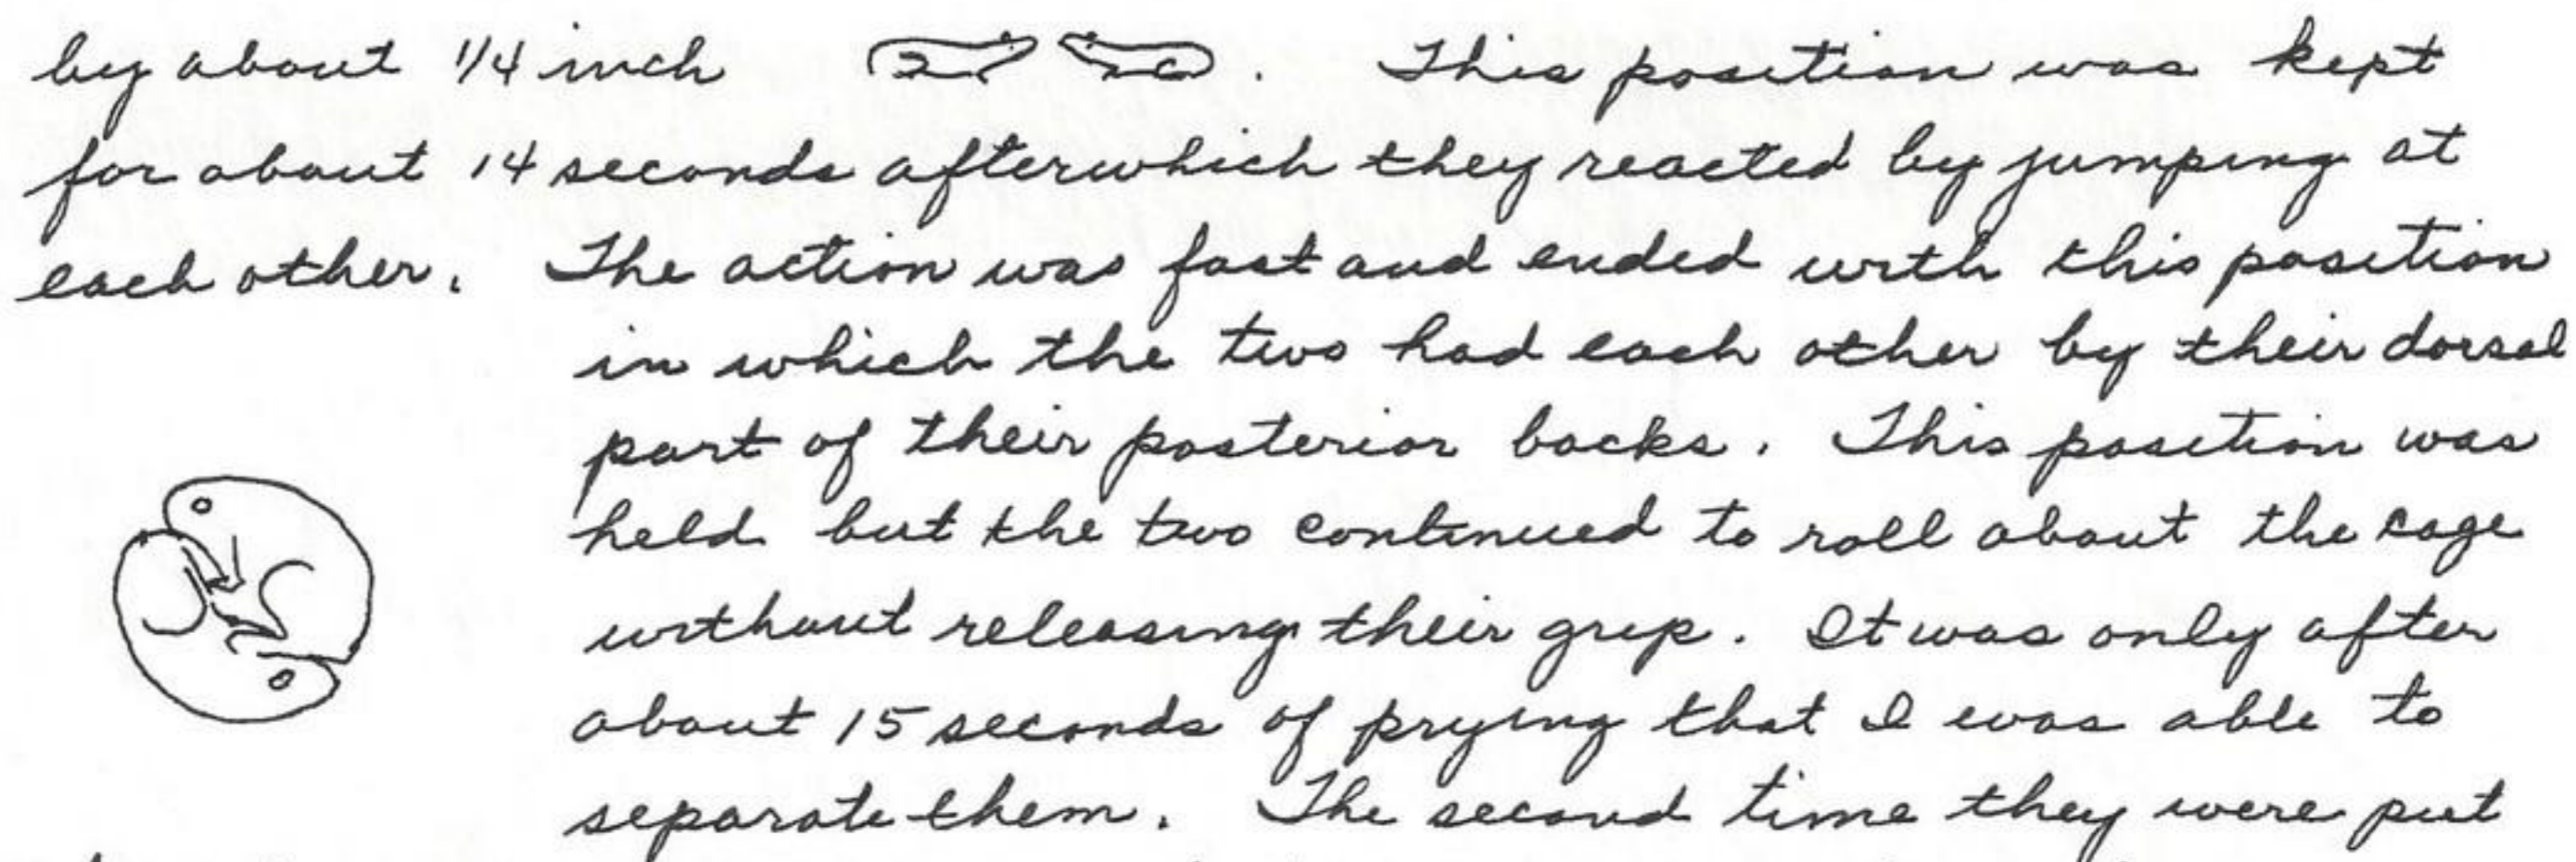 by about 1/4 inch . This position was kept
for about 14 seconds afterwhich they reacted by jumping at
each other. The action was fast and ended with this position
in which the two had each other by their dorsal
part of their posterior backs. This position was
held but the two continued to roll about the cage
without releasing their grip. It was only after
about 15 seconds of prying that I was able to
separate them. The second time they were put